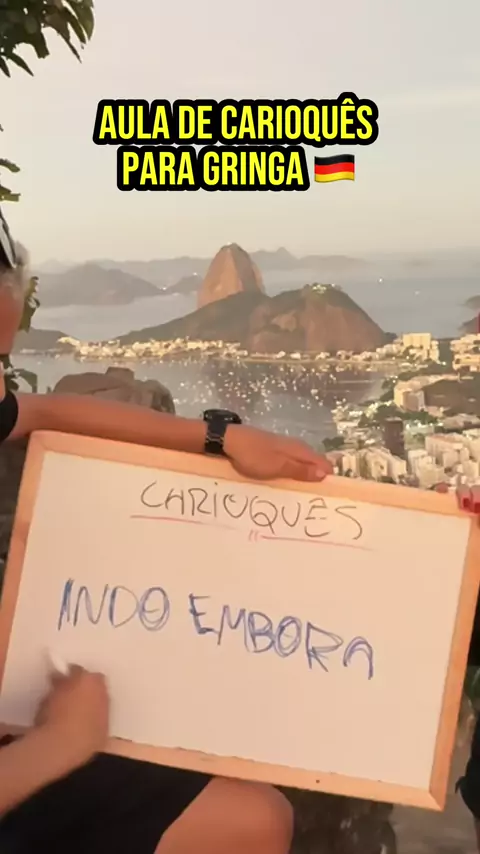 AULA DE CARIOQUÊS
PARA GRINGA 🇩🇪
CARIOQUÊS
INDO EMBORA